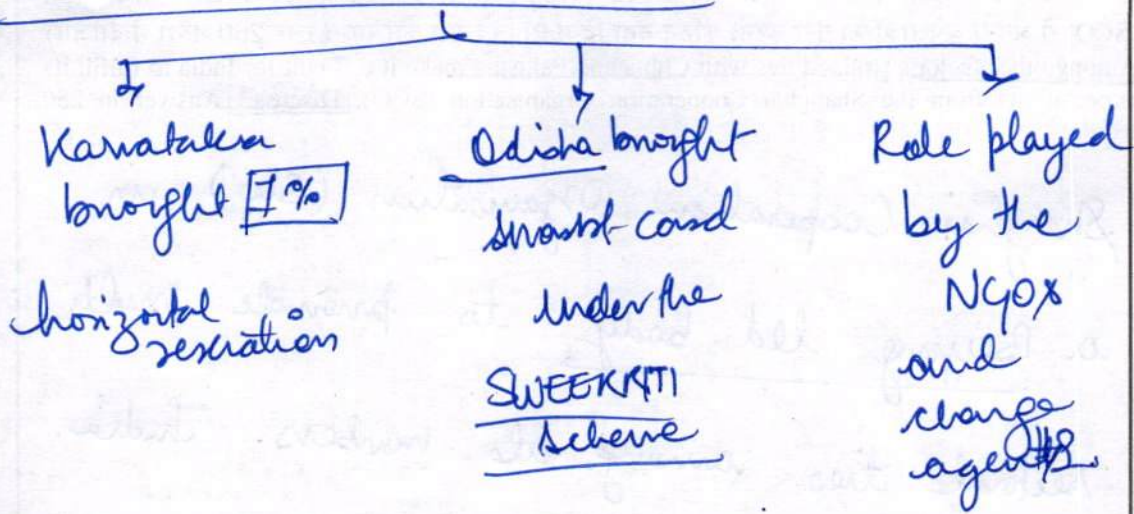 Karnataka
brought 1%
horizontal
reservation
Odisha brought
smart card
under the
SWEEKRITI
scheme
Role played
by the
NGOs
and
change
agents.